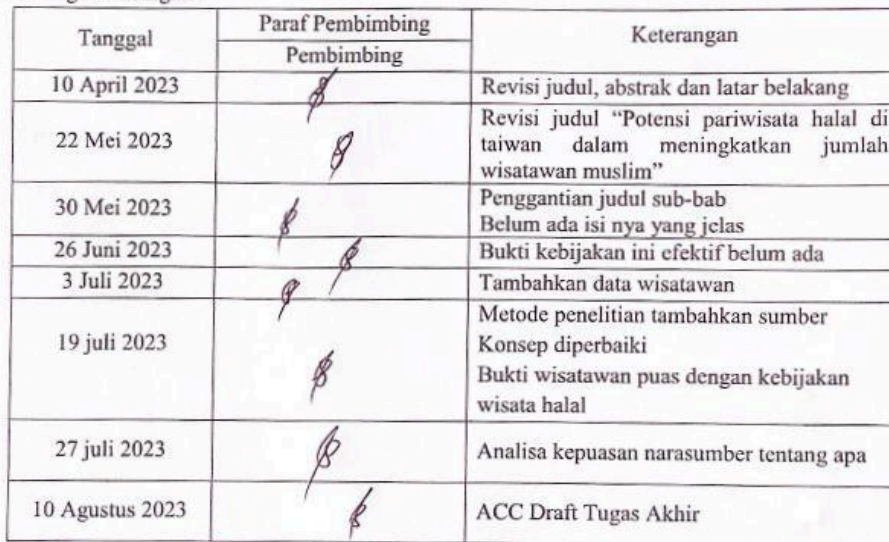 Tanggal
Paraf Pembimbing
Pembimbing
Keterangan
10 April 2023
Revisi judul, abstrak dan latar belakang
22 Mei 2023
Revisi judul “Potensi pariwisata halal di
taiwan dalam meningkatkan jumlah
wisatawan muslim”
30 Mei 2023
Penggantian judul sub-bab
Belum ada isi nya yang jelas
26 Juni 2023
Bukti kebijakan ini efektif belum ada
3 Juli 2023
Tambahkan data wisatawan
19 juli 2023
Metode penelitian tambahkan sumber
Konsep diperbaiki
Bukti wisatawan puas dengan kebijakan
wisata halal
27 juli 2023
Analisa kepuasan narasumber tentang apa
10 Agustus 2023
ACC Draft Tugas Akhir